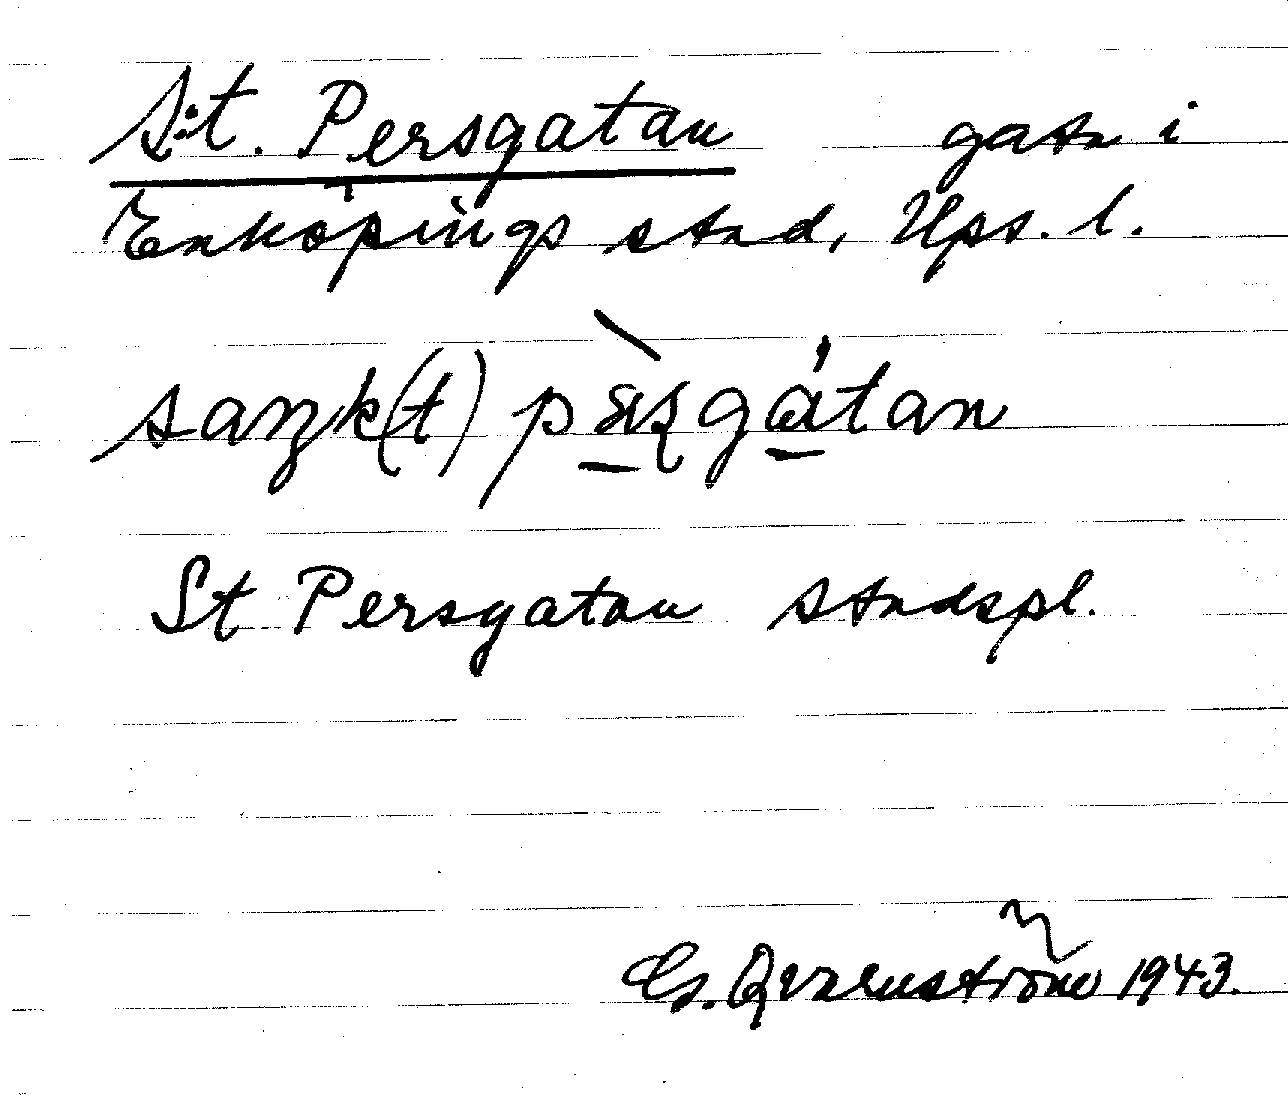 S:t. Persgatan gata i
Enköpings stad, Ups. l.
saŋk(t) pæ̀ʂgátan
St Persgatan stadspl.
G. Qvarnström 1943.